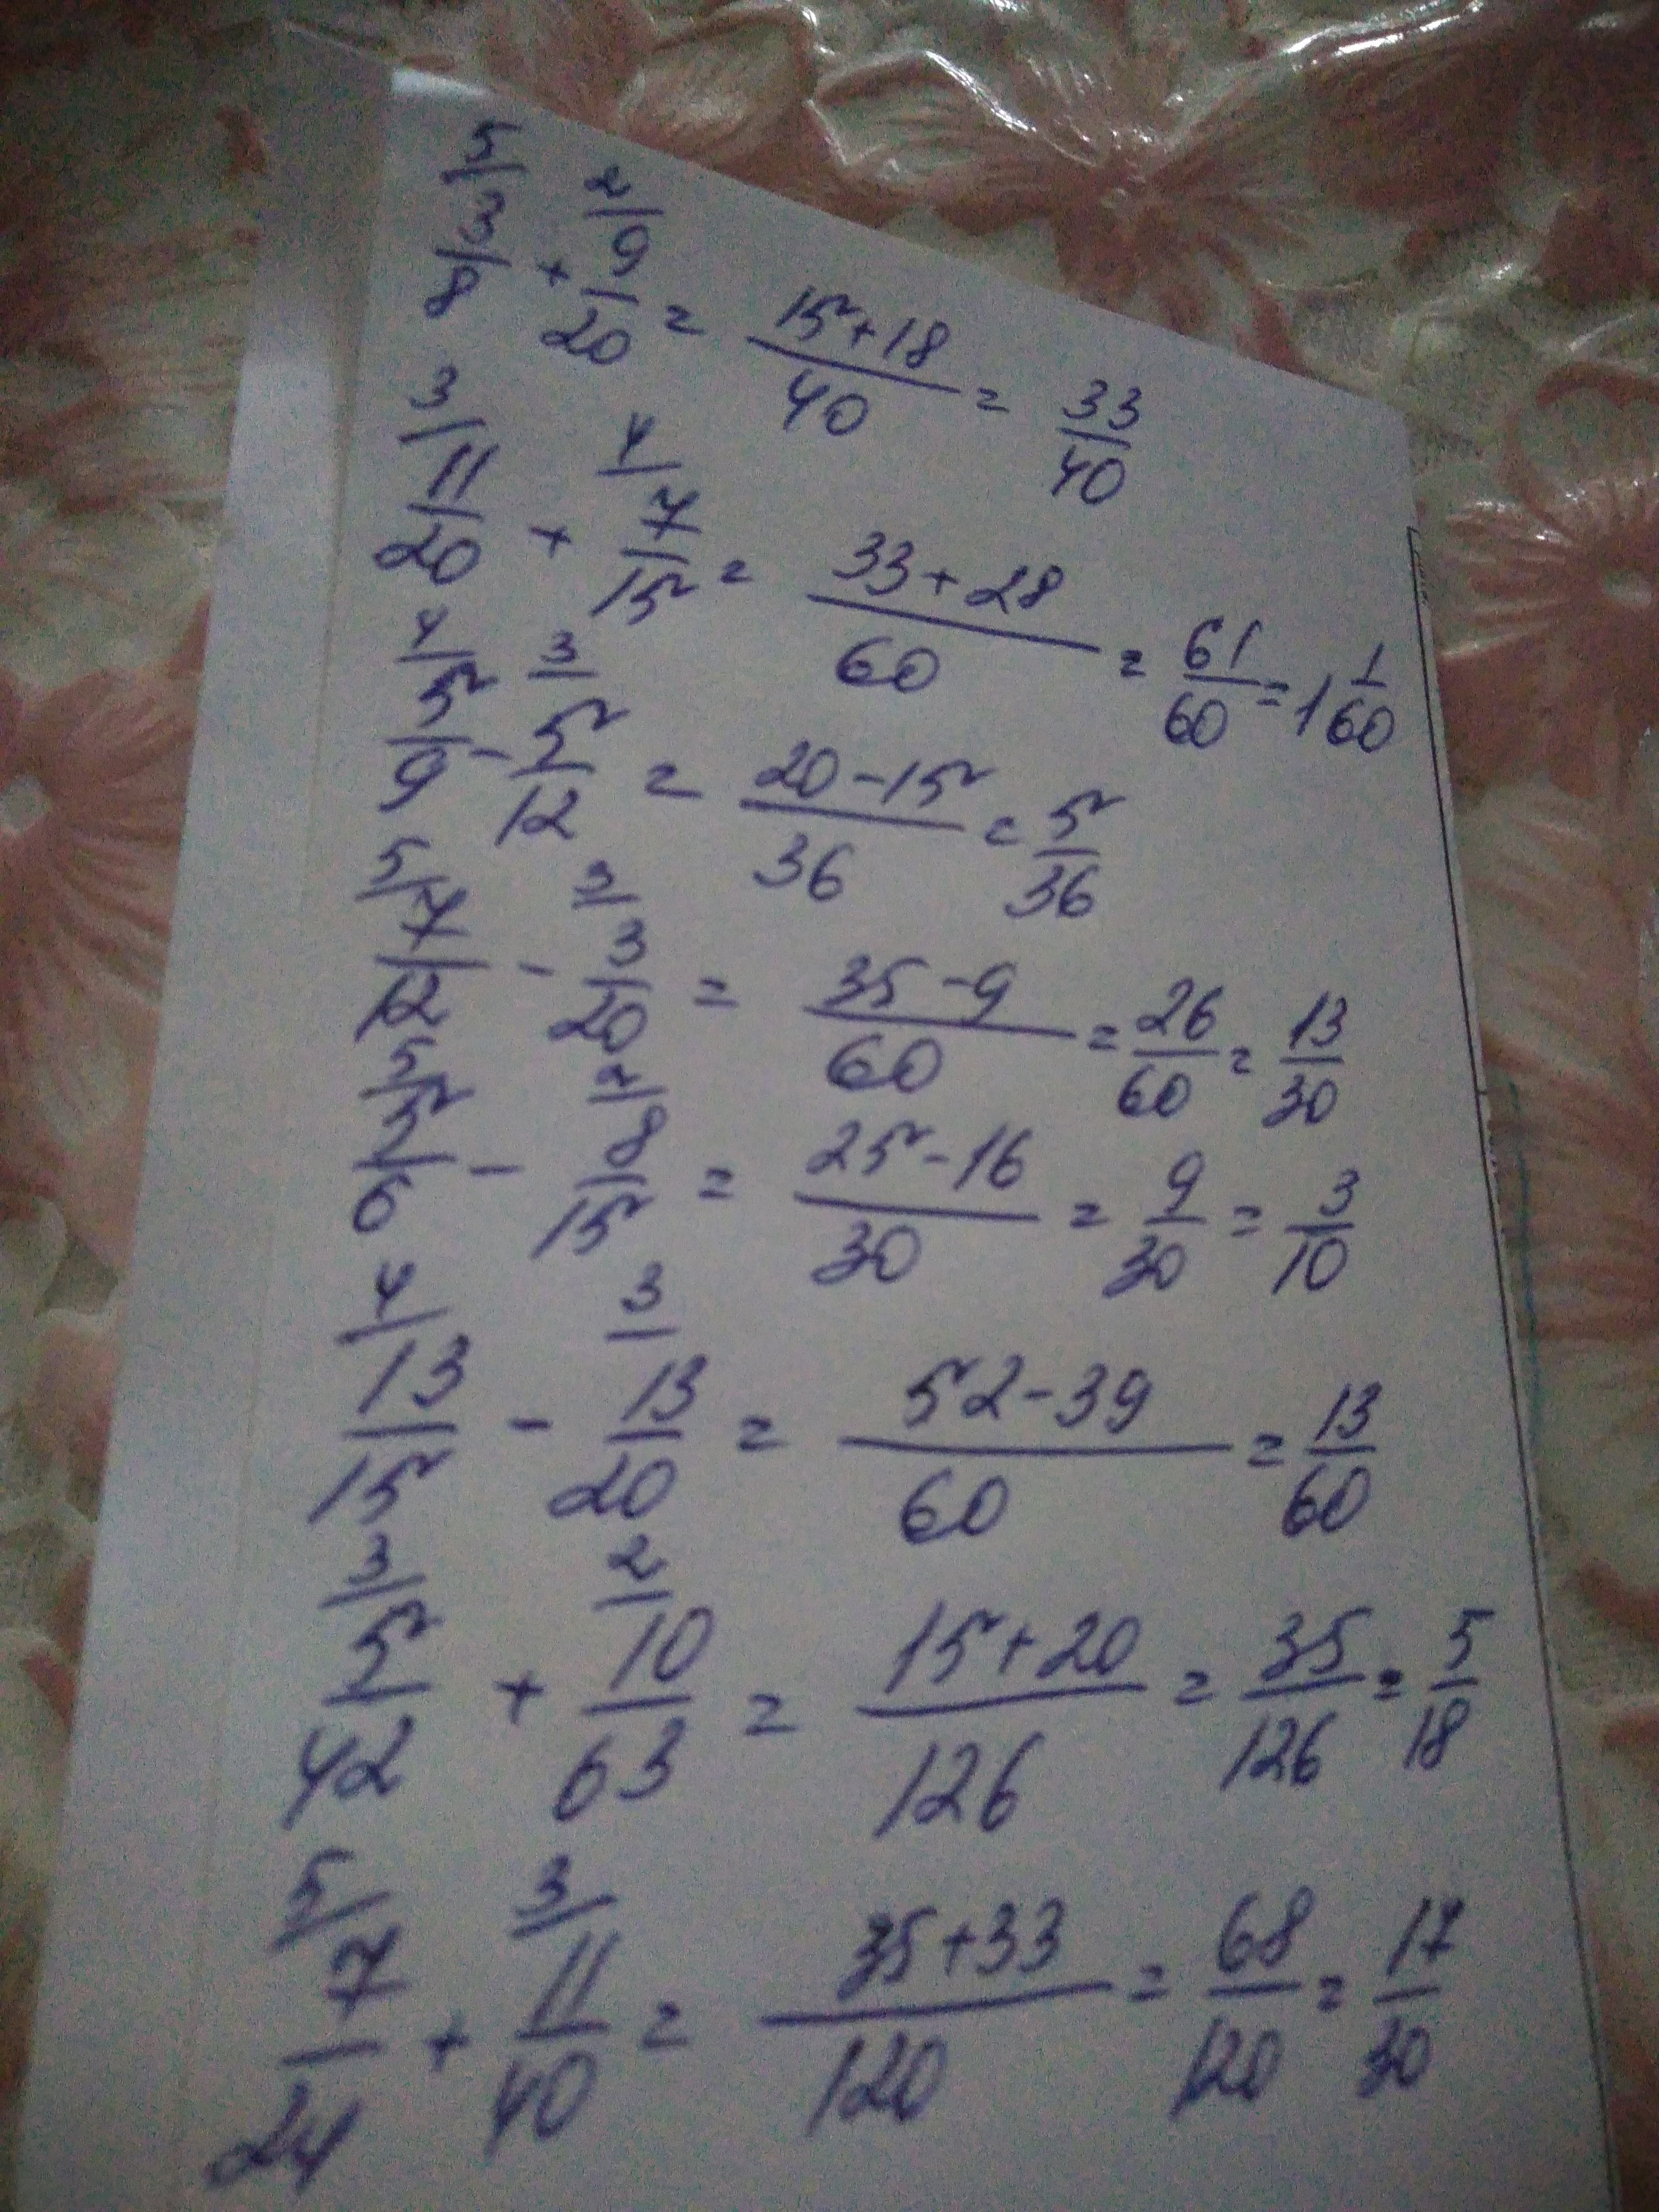 5/ 2/
3/8 + 9/20 = 15+18/40 = 33/40
3/ 4/
11/20 + 7/15 = 33+28/60 = 61/60 = 1 1/60
4/ 3/
5/9 - 5/12 = 20-15/36 = 5/36
5/ 3/
7/12 - 3/20 = 35-9/60 = 26/60 = 13/30
5/ 2/
5/6 - 8/15 = 25-16/30 = 9/30 = 3/10
4/ 3/
13/15 - 13/20 = 52-39/60 = 13/60
3/ 2/
5/42 + 10/63 = 15+20/126 = 35/126 = 5/18
5/ 3/
7/24 + 11/40 = 35+33/120 = 68/120 = 17/30